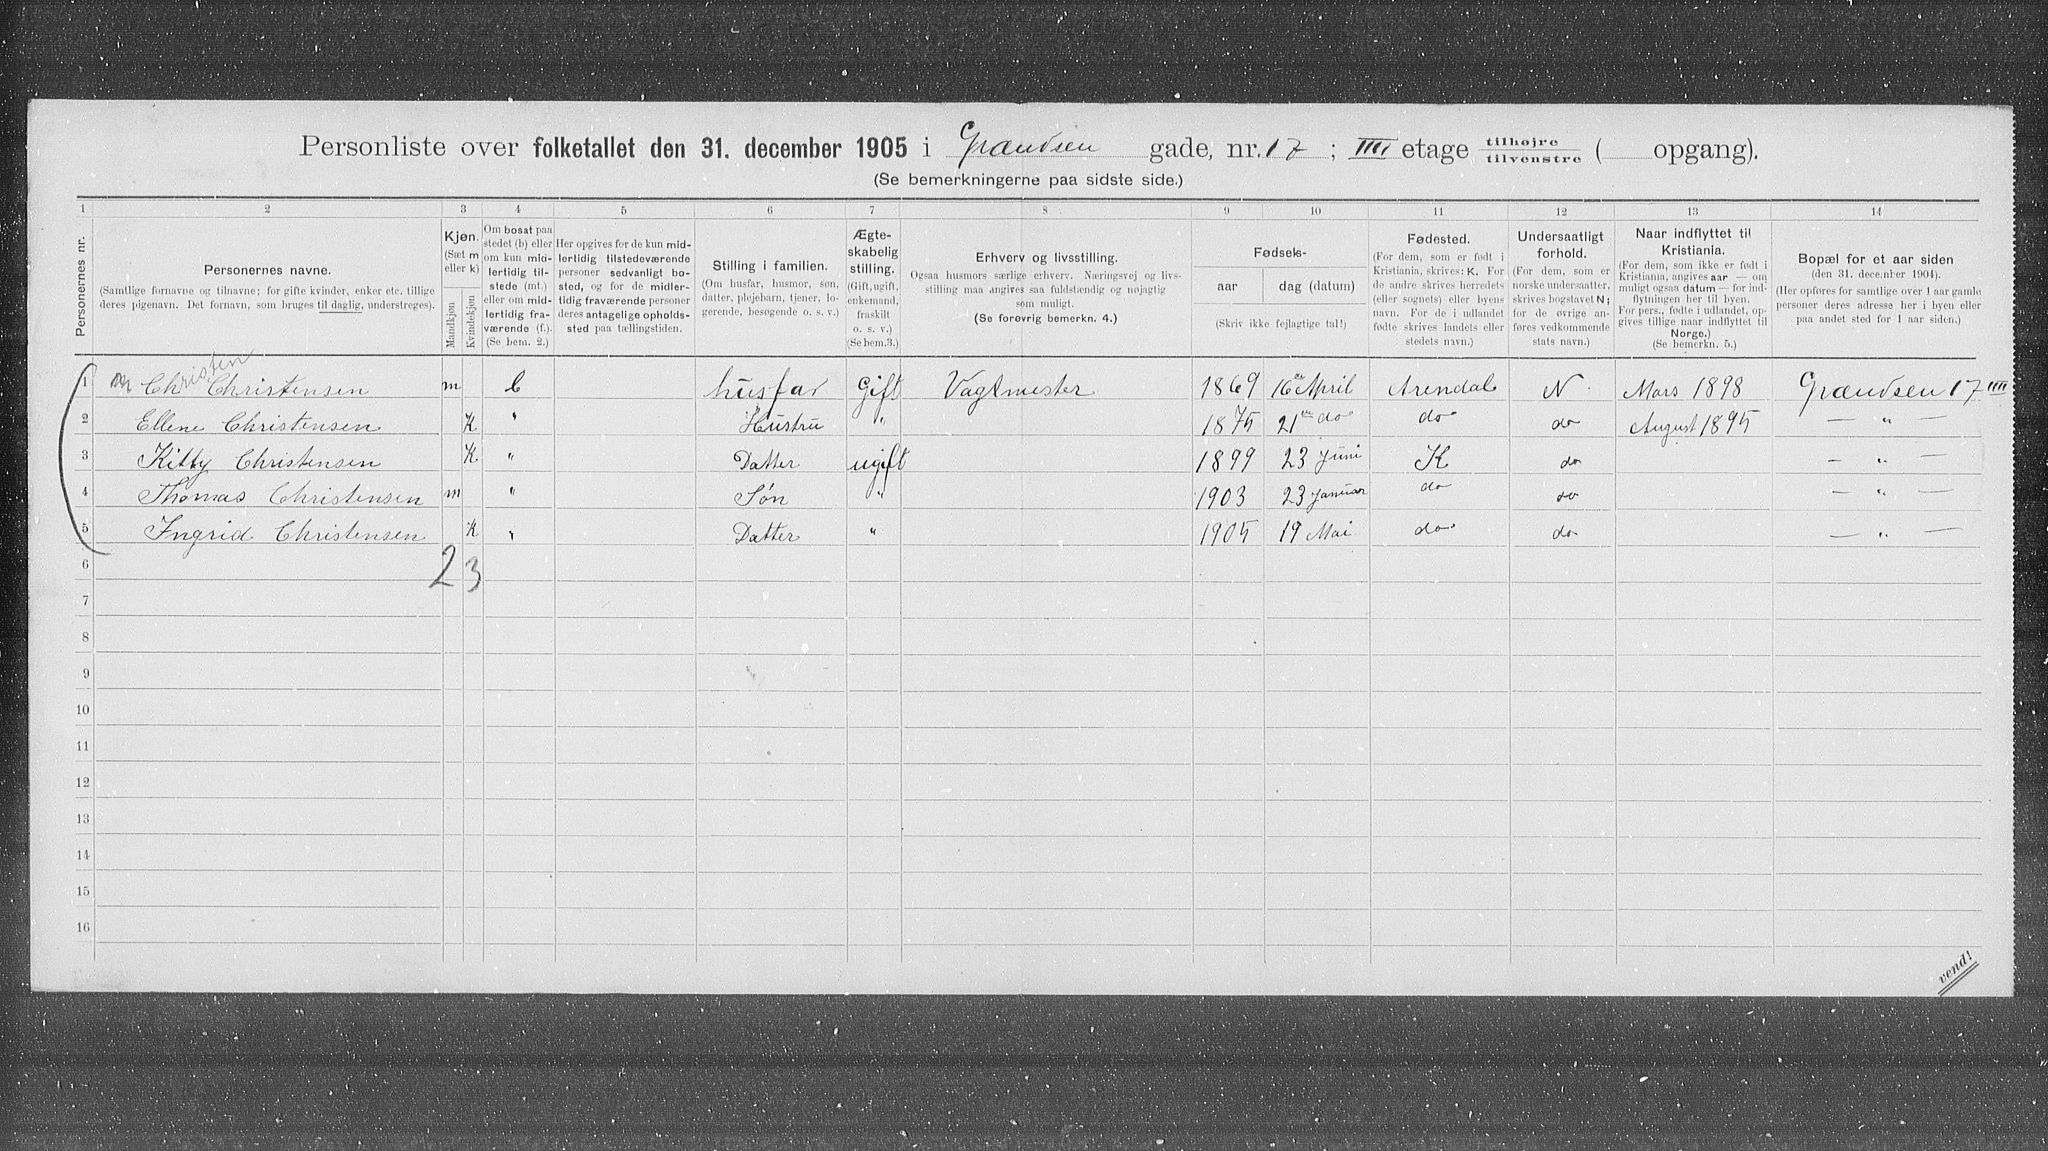 Personliste over folketallet den 31. december 1905 i Grændsen gade, nr. 17 ; IIII etage tilhøjre tilvenstre ( opgang).
(Se bemerkningerne paa sidste side.)
1 2 3 4 5 6 7 8 9 10 11 12 13 14
Personernes nr.
Personernes navne.
(Samtlige fornavne og tilnavne; for gifte kvinder, enker etc. tillige
deres pigenavn. Det fornavn, som bruges til daglig, understreges).
Kjøn.
(Sæt m
eller k)
Mandkjøn
Kvindekjøn
Om bosat paa
stedet (b) eller
om kun mid-
lertidig til-
stede (mt.)
eller om mid-
lertidig fra-
værende (f.).
(Se bem. 2.)
Her opgives for de kun mid-
lertidig tilstedeværende
personer sedvanligt bo-
sted, og for de midler-
tidig fraværende personer
deres antagelige opholds-
sted paa tællingstiden.
Stilling i familien.
(Om husfar, husmor, søn,
datter, plejebarn, tjener, lo-
gerende, besøgende o. s. v.)
Ægte-
skabelig
stilling.
(Gift, ugift,
enkemand,
fraskilt
o. s. v.)
(Se bem.3.)
Erhverv og livsstilling.
Ogsaa husmors særlige erhverv. Næringsvej og livs-
stilling maa angives saa fuldstændig og nøjagtig
som muligt.
(Se forøvrig bemerkn. 4.)
Fødsels-
aar
dag (datum)
(Skriv ikke fejlagtige tal!)
Fødested.
(For dem, som er født i
Kristiania, skrives: K. For
de andre skrives herredets
(eller sognets) eller byens
navn. For de i udlandet
fødte skrives landets eller
stedets navn.)
Undersaatligt
forhold.
(For dem, som er
norske undersaatter,
skrives bogstavet N;
for de øvrige an-
føres vedkommende
stats navn.)
Naar indflyttet til
Kristiania.
(For dem, som ikke er født i
Kristiania, angives aar — om
muligt ogsaa datum — for ind-
flytningen her til byen.
For pers., fødte i udlandet, op-
gives tillige naar indflyttet til
Norge.)
(Se bemerkn. 5.)
Bopæl for et aar siden
(den 31. december 1904).
(Her opføres for samtlige over 1 aar gamle
personer deres adresse her i byen eller
paa andet sted for 1 aar siden.)
Christen
1 m Ch Christensen m b husfar Gift Vagtmester 1869 16de April Arendal N. Mars 1898 Grændsen 17 IIII
2 Ellene Christensen K " Hustru " 1875 21de do do do August 1895 — " —
3 Kitty Christensen K " Datter ugift 1899 23 Juni K do — " —
4 Thomas Christensen m " Søn " 1903 23 Januar do do — " —
5 Ingrid Christensen K " Datter " 1905 19 Mai do do — " —
6 2 3
7
8
9
10
11
12
13
14
15
16
vend!